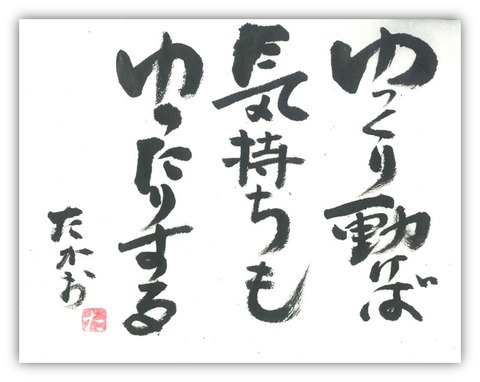 ゆっくり動けば
気持ちも
ゆったりする
たかお
た